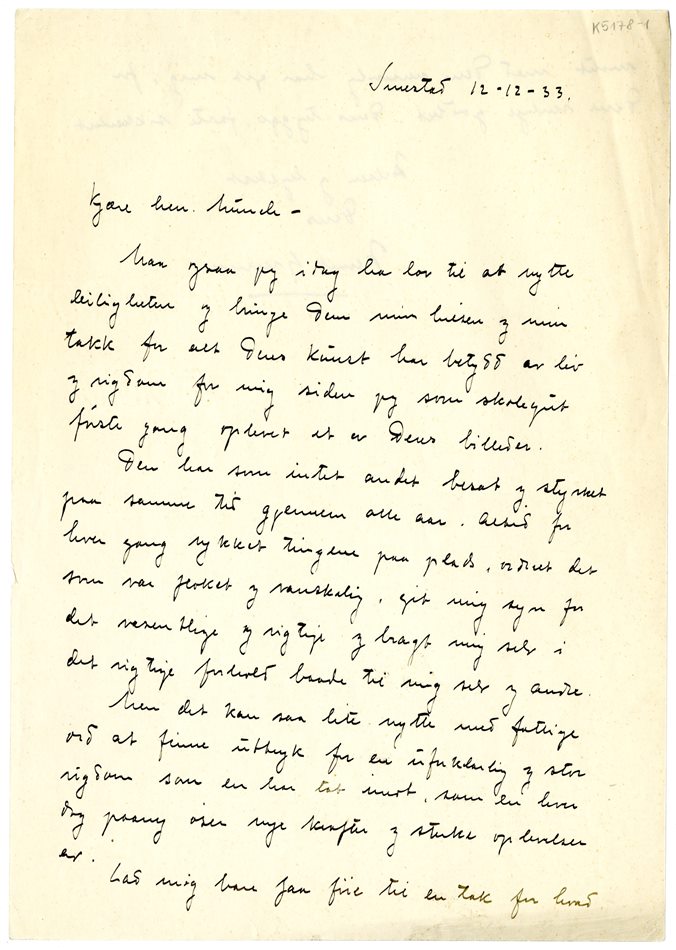 K5178-1
Smestad 12-12-33.
Kjære herr Münch -
Maa ogsaa jeg idag ha lov til at nytte
leiligheten og bringe Dem min hilsen og min
takk for alt Deres kunst har betydd av liv
og rigdom for mig siden jeg som skolegut
første gang oplevet et av Deres billeder.
Den har som intet andet beroet og styrket
paa samme tid gjennem alle aar. Altid for
hver gang rykket tingene paa plads, ordnet det
som var forket og vanskelig, git mig syn for
det vesentlige og rigtige og bragt mig selv i
det rigtige forhold baade til mig selv og andre.
Men det kan saa lite nytte med fattige
ord at finne uttryk for en uforklarlig og stor
rigdom som en har tat imot, som en hver
dag paany øser nye kræfter og sterke oplevelser
av.
Lad mig bare faa føie til en tak for hvad